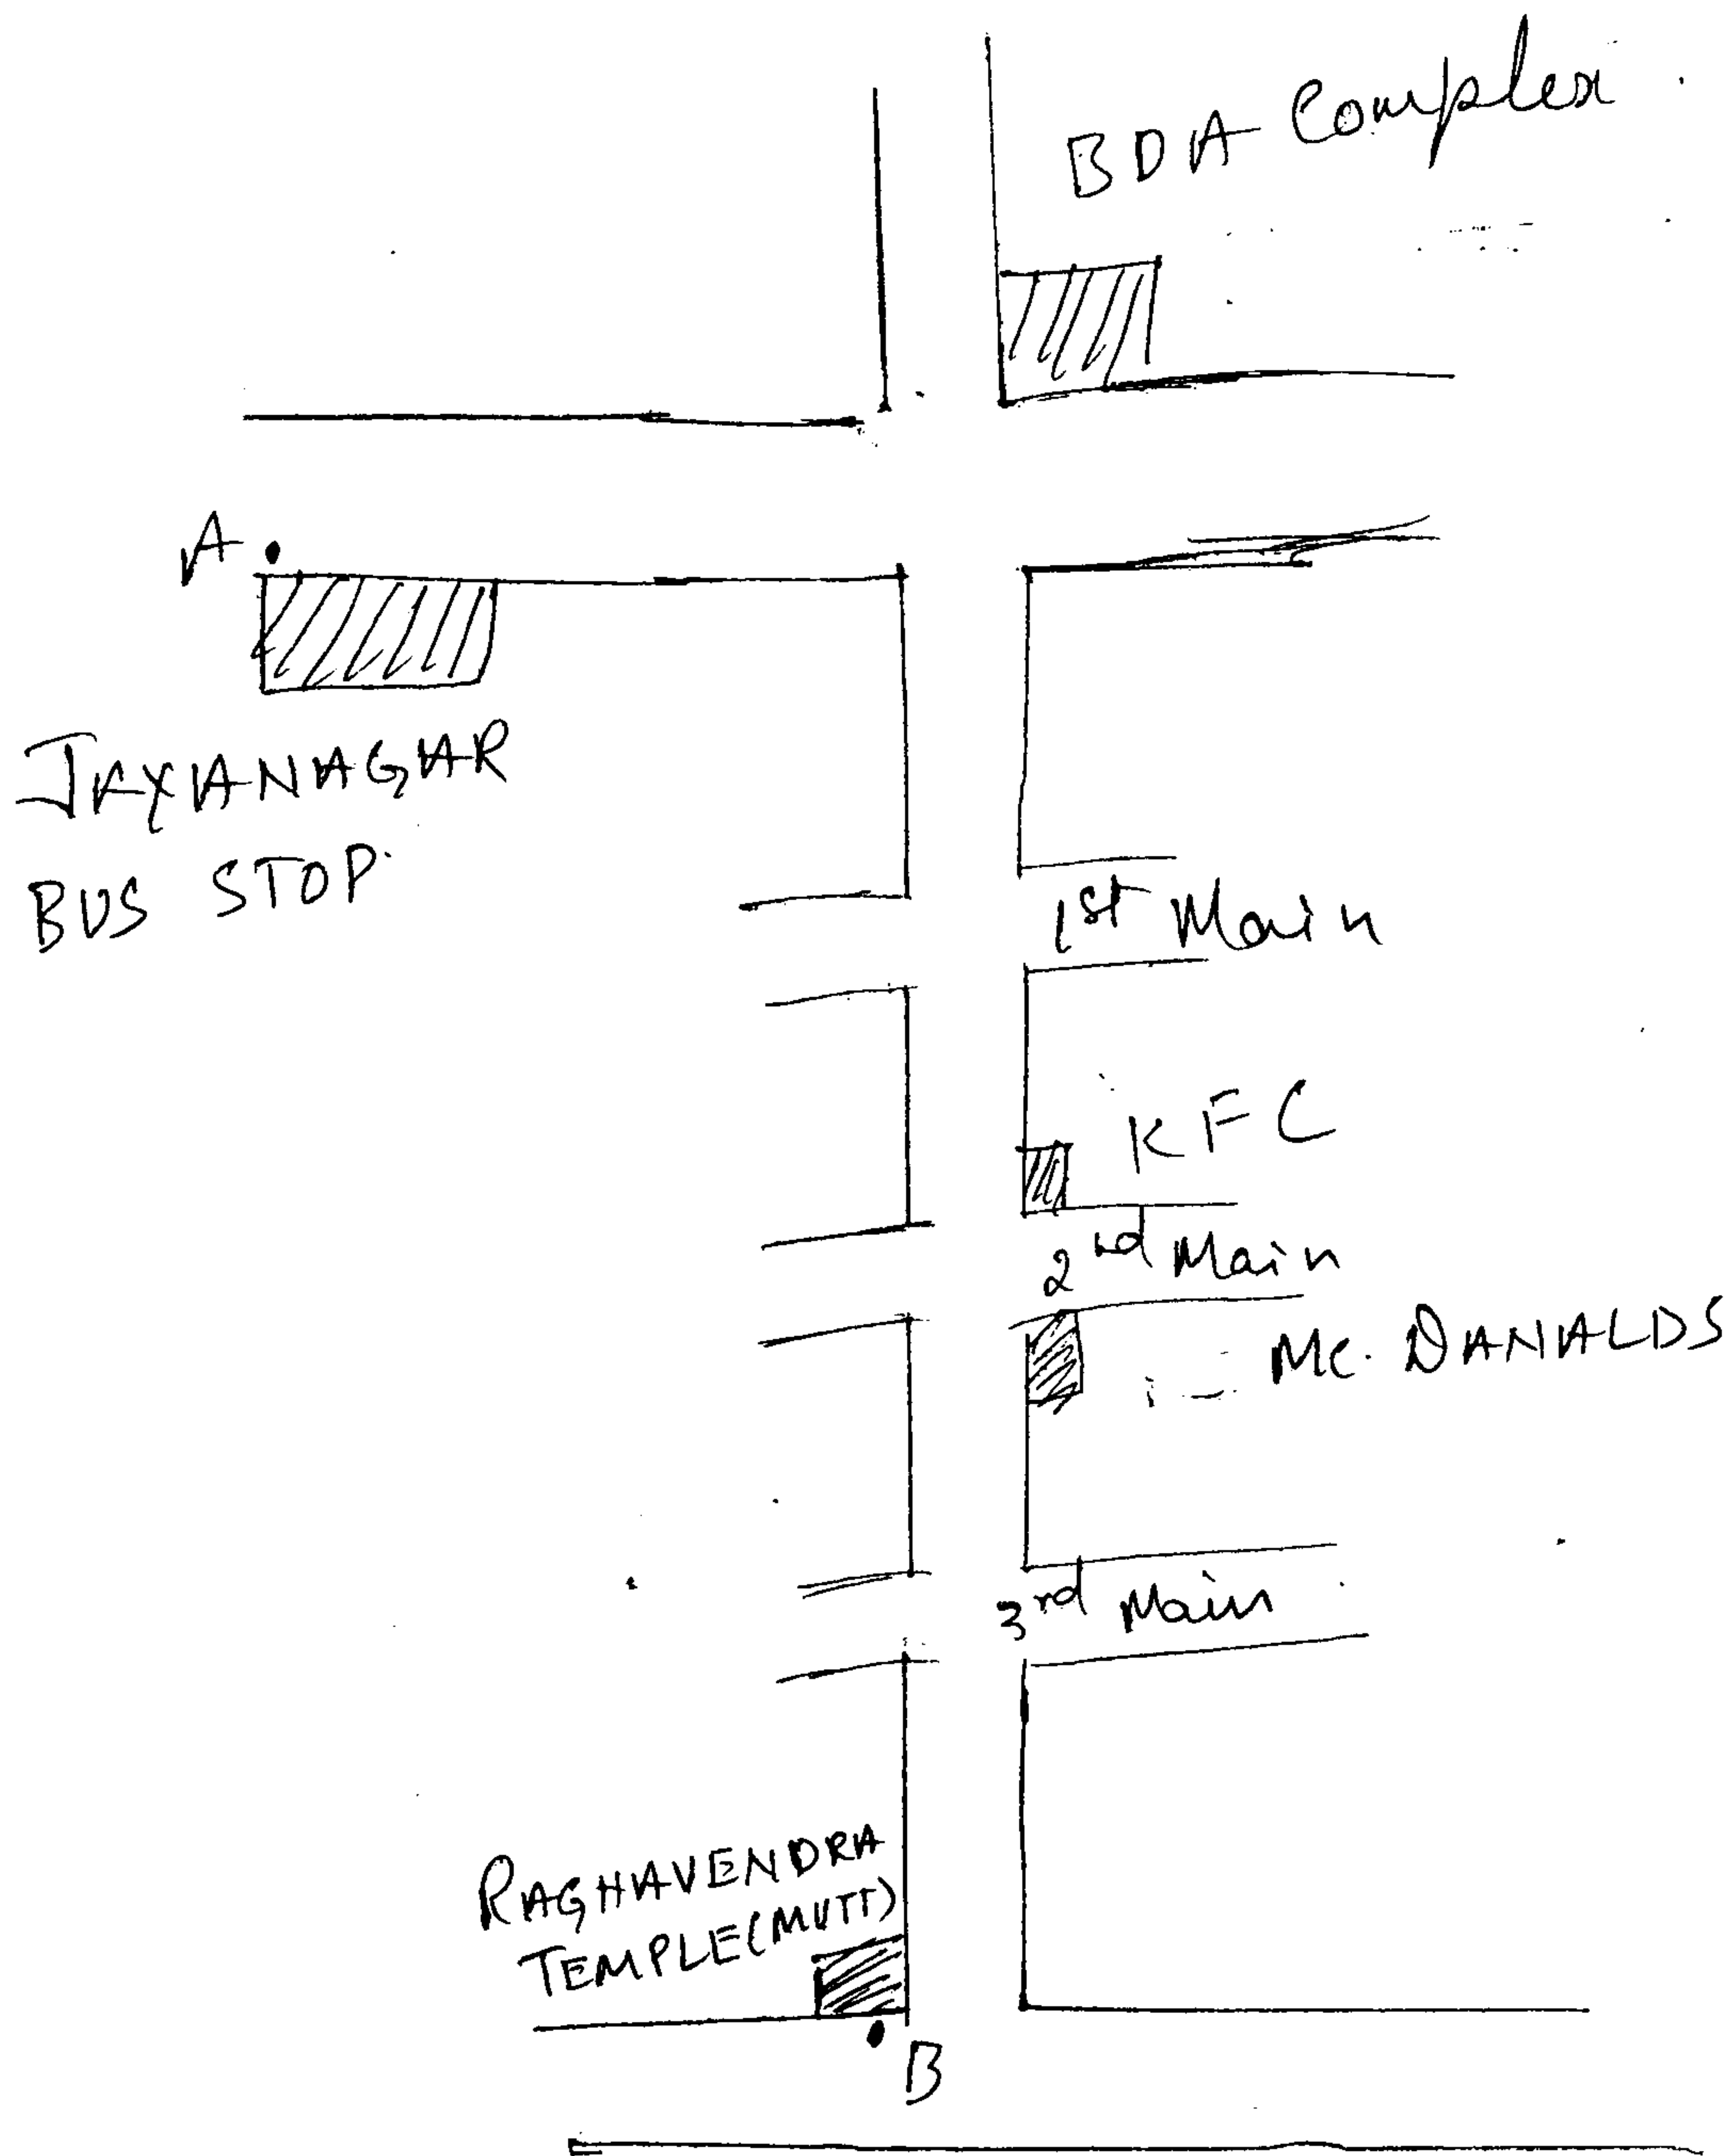 BDA Complex
A
JAYANAGAR
BUS STOP
1st Main
KFC
2nd Main
Mc. DANALDS
3rd Main
RAGHAVENDRA
TEMPLE(MUTT)
B